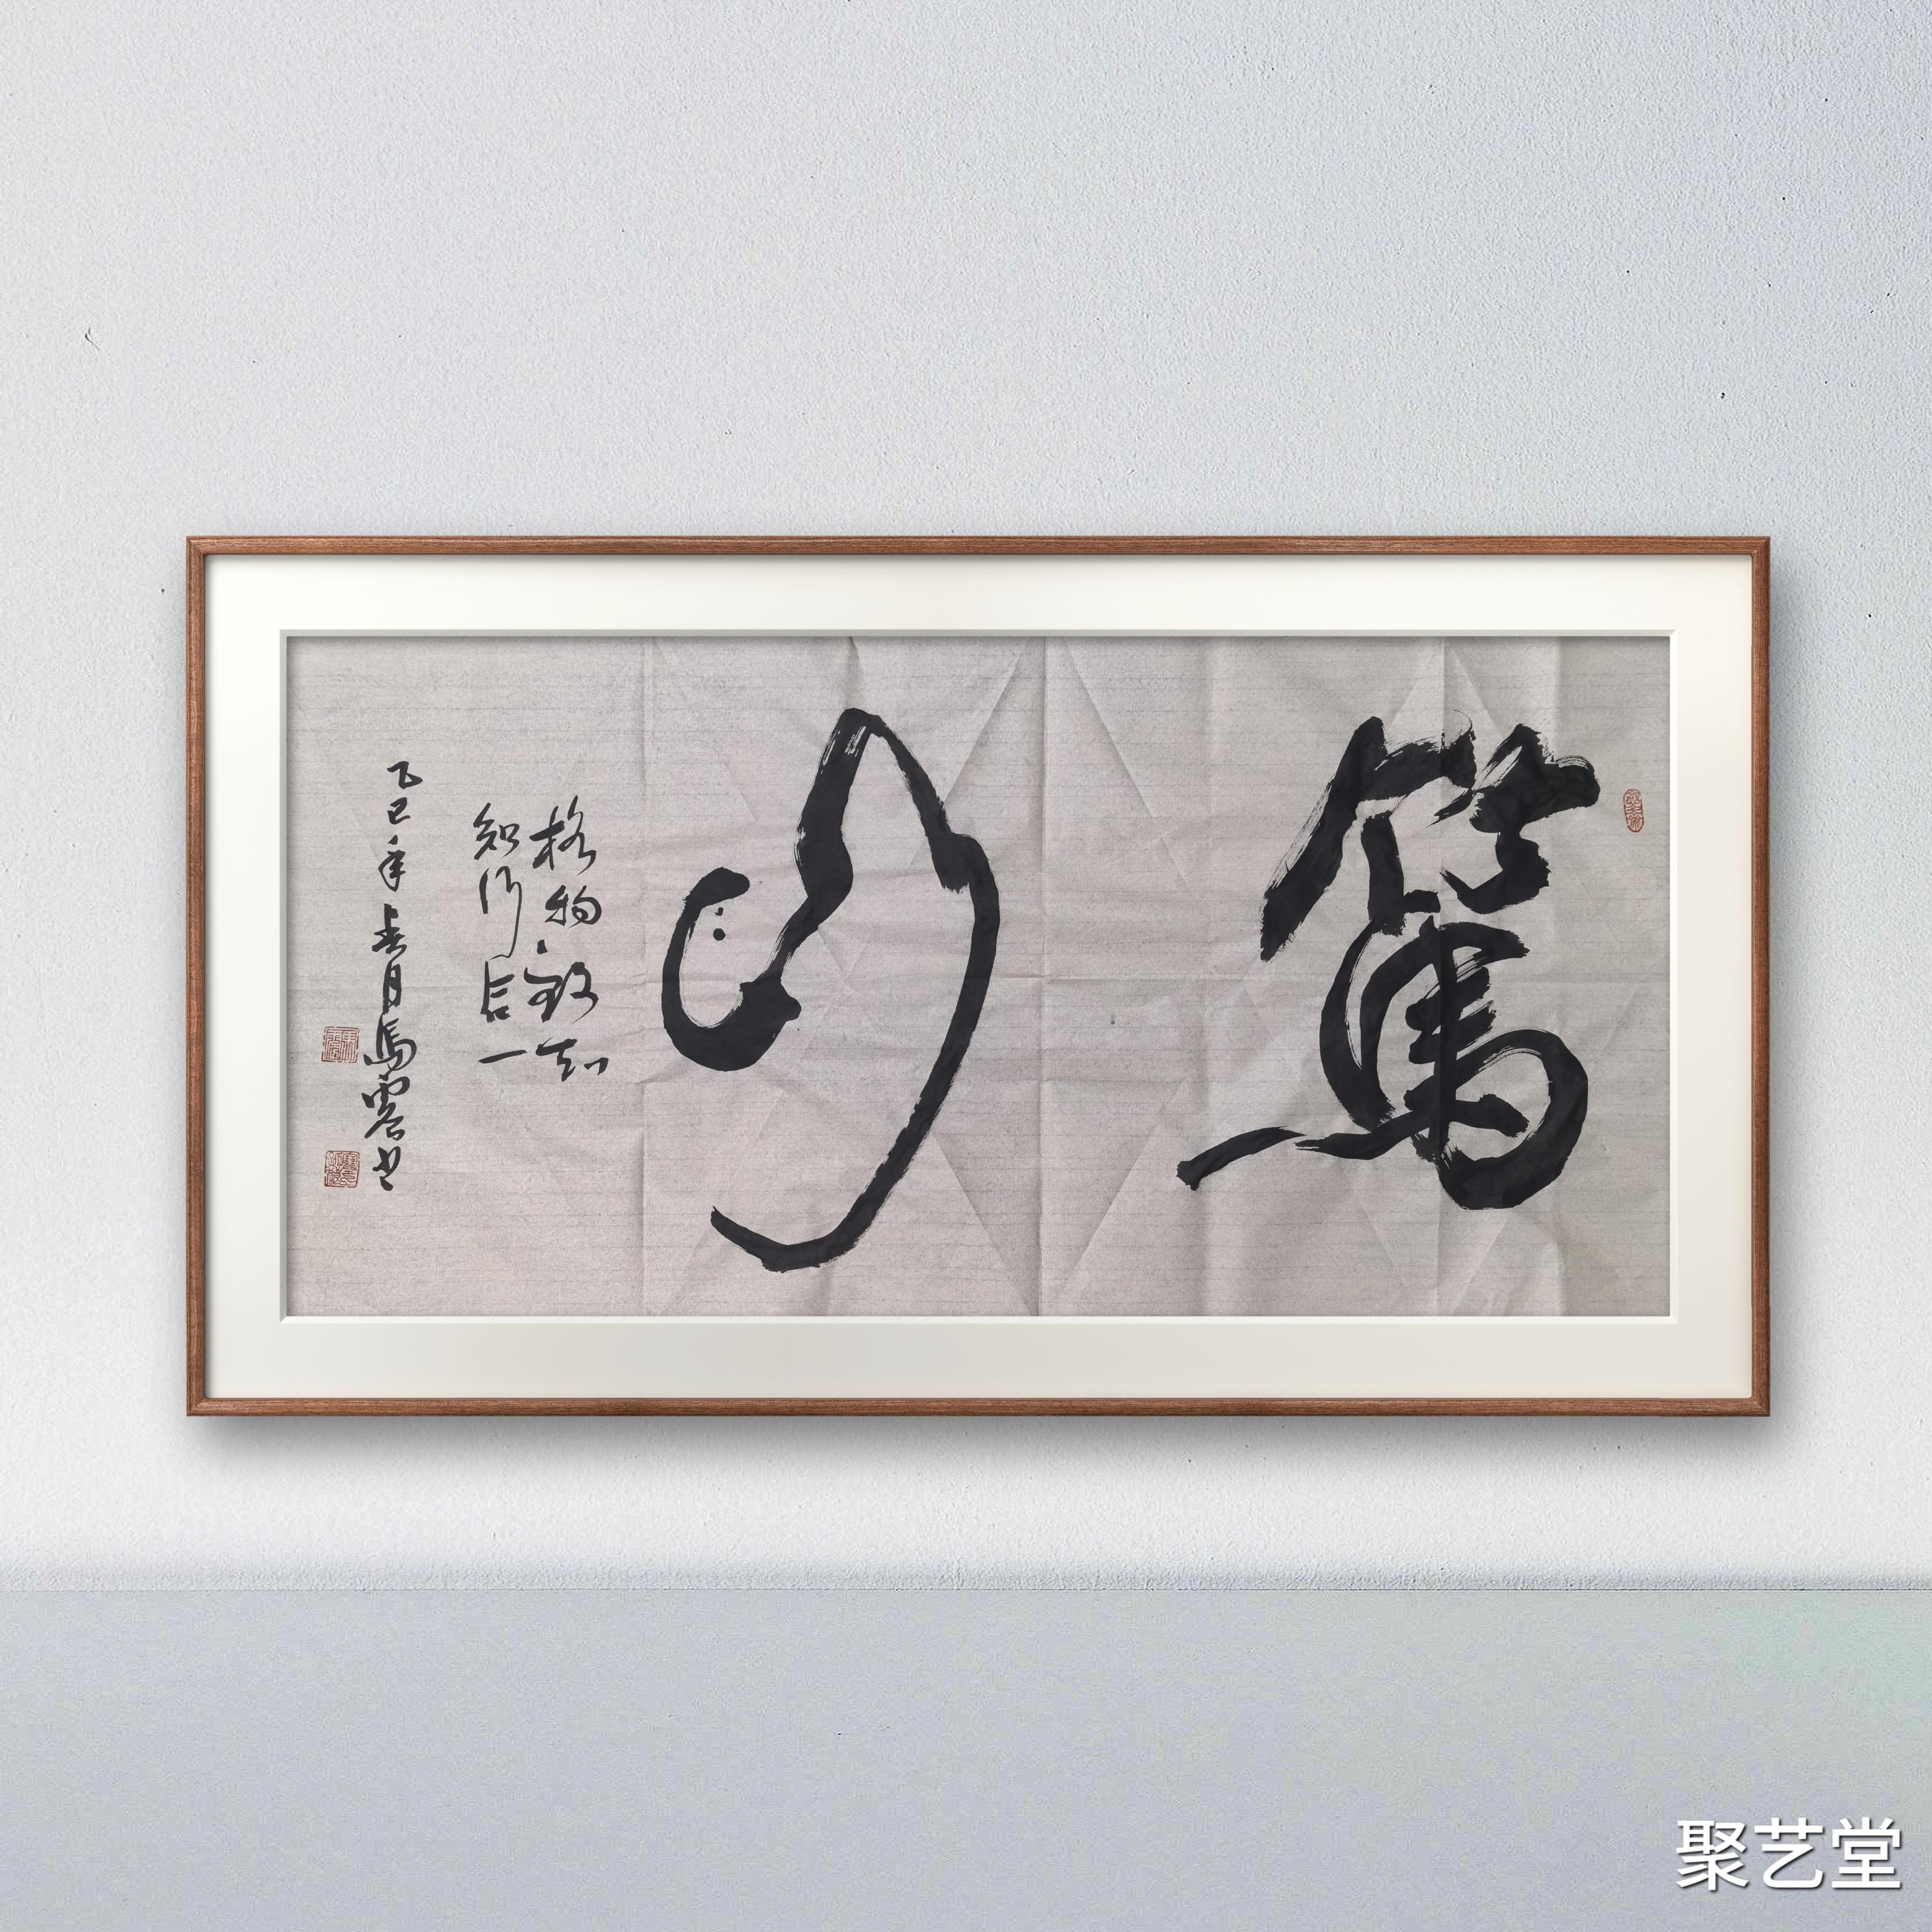 篤行
格物致知
知行合一
乙巳年春月馬书
聚艺堂